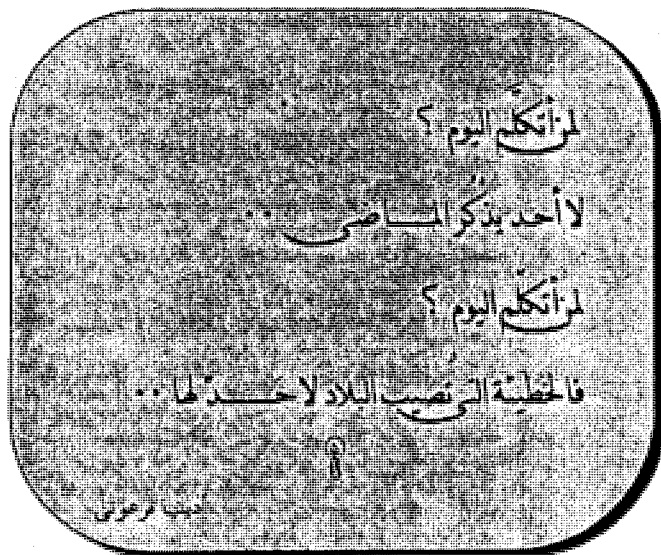 لمن أتكلّم اليوم ؟
لا أحد يذكُر المـــاضى ..
لمن أتكلّم اليوم ؟
فالخطيئة التى تُصيب البلاد لا حَـــدّ لها ..
أديب فرعونى